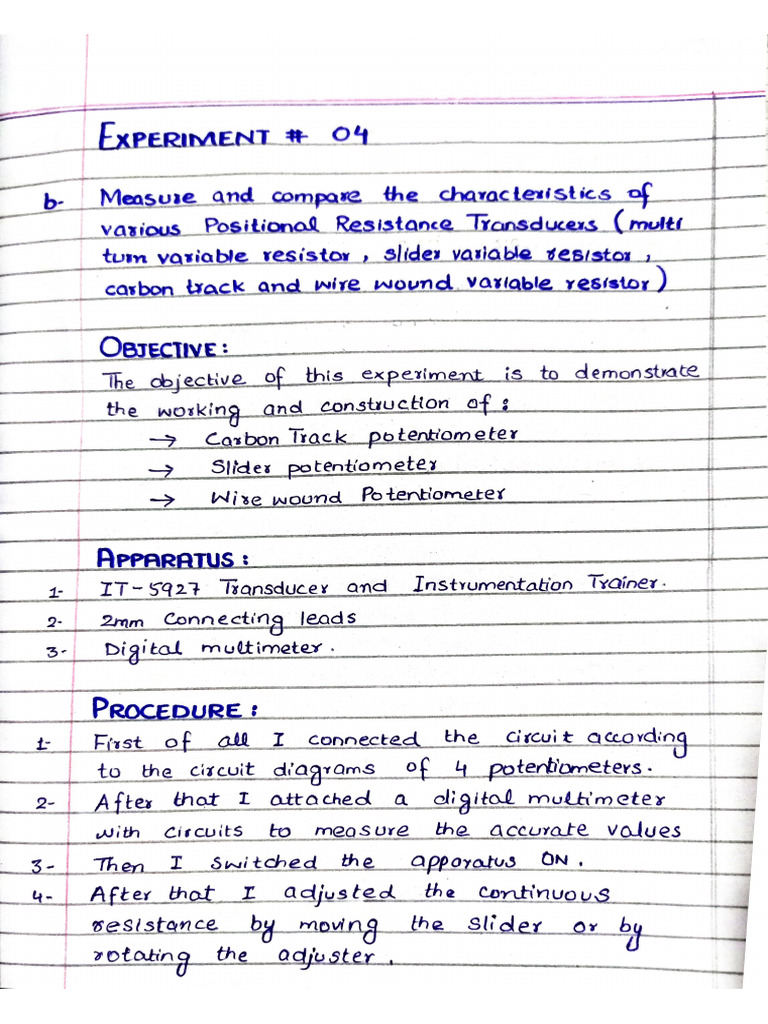 EXPERIMENT # 04
b- Measure and compare the characteristics of
various Positional Resistance Transducers (multi
turn variable resistor, slider variable resistor,
carbon track and wire wound variable resistor)
OBJECTIVE:
The objective of this experiment is to demonstrate
the working and construction of:
→ Carbon Track potentiometer
→ Slider potentiometer
→ Wire wound Potentiometer
APPARATUS:
1- IT-5927 Transducer and Instrumentation Trainer.
2- 2mm Connecting leads
3- Digital multimeter.
PROCEDURE:
1- First of all I connected the circuit according
to the circuit diagrams of 4 potentiometers.
2- After that I attached a digital multimeter
with circuits to measure the accurate values
3- Then I switched the apparatus ON.
4- After that I adjusted the continuous
resistance by moving the slider or by
rotating the adjuster.